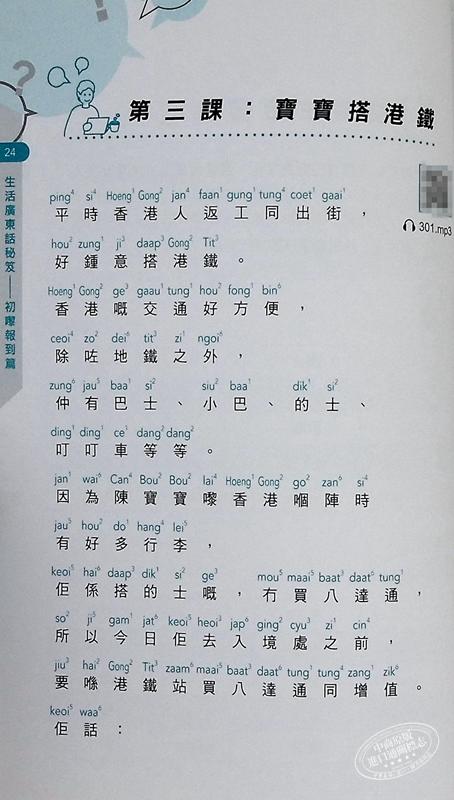 第三課：寶寶搭港鐵
24
生活廣東話秘笈——初嚟報到篇
301.mp3
ping⁴ si⁴ Hoeng¹ Gong² jan⁴ faan¹ gung¹ tung⁴ coet¹ gaai¹
平時香港人返工同出街，
hou² zung¹ ji³ daap³ Gong² Tit³
好鍾意搭港鐵。
Hoeng¹ Gong² ge³ gaau¹ tung¹ hou² fong¹ bin⁶
香港嘅交通好方便，
ceoi⁴ zo² dei⁶ tit³ zi¹ ngoi⁶
除咗地鐵之外，
zung⁶ jau⁵ baa¹ si² siu² baa¹ dik¹ si²
仲有巴士、小巴、的士、
ding¹ ding¹ ce¹ dang² dang²
叮叮車等等。
jan¹ wai⁶ Can⁴ Bou² Bou² lai⁴ Hoeng¹ Gong² go² zan⁶ si⁴
因為陳寶寶嚟香港嗰陣時
jau⁵ hou² do¹ hang⁴ lei⁵
有好多行李，
keoi⁵ hai⁶ daap³ dik¹ si² ge³ mou⁵ maai⁵ baat³ daat⁶ tung¹
佢係搭的士嘅，冇買八達通，
so² ji⁵ gam¹ jat⁶ keoi⁵ heoi³ jap⁶ ging² cyu³ zi¹ cin⁴
所以今日佢去入境處之前，
jiu³ hai² Gong² Tit³ zaam⁶ maai⁵ baat³ daat⁶ tung¹ tung⁴ zang¹ zik⁶
要喺港鐵站買八達通同增值。
keoi⁵ waa⁶
佢話：
中商原版
進口通關標志